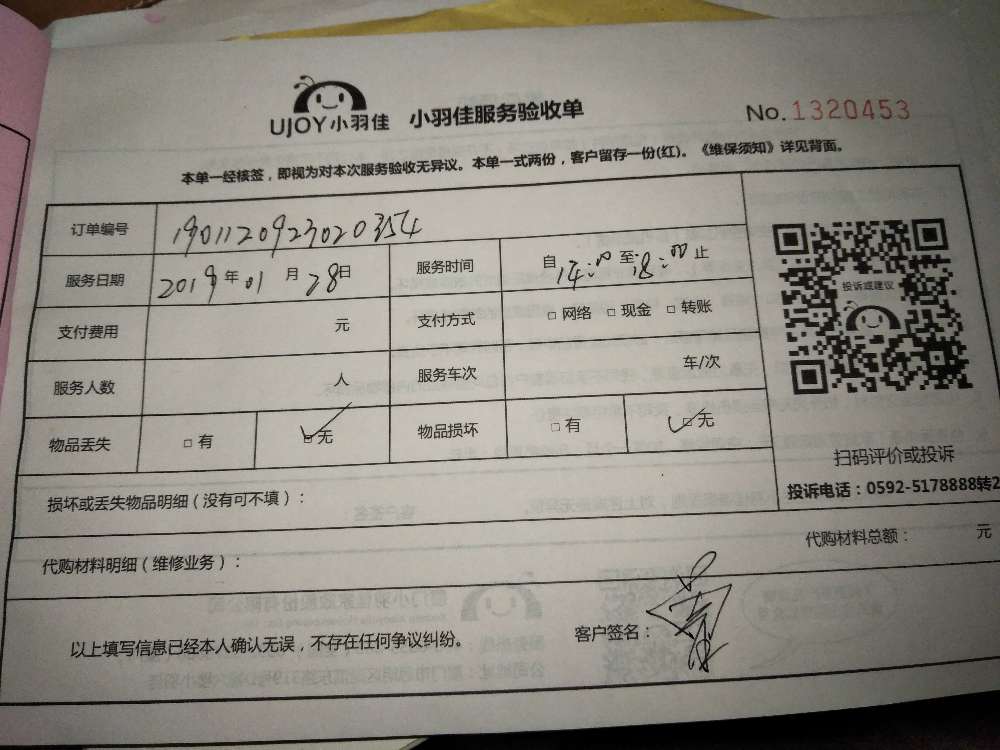 UJOY小羽佳 小羽佳服务验收单 No.1320453
本单一经核签，即视为对本次服务验收无异议。本单一式两份，客户留存一份(红)。《维保须知》详见背面。
订单编号 1901120923020354
服务日期 2019年01月28日 服务时间 自14:00至18:00止
支付费用 元 支付方式 □ 网络 □ 现金 □ 转账
服务人数 人 服务车次 车/次
物品丢失 □ 有 ☑无 物品损坏 □ 有 ☑无
投诉或建议
扫码评价或投诉
投诉电话：0592-5178888转2
损坏或丢失物品明细（没有可不填）：
代购材料明细（维修业务）： 代购材料总额： 元
以上填写信息已经本人确认无误，不存在任何争议纠纷。 客户签名：